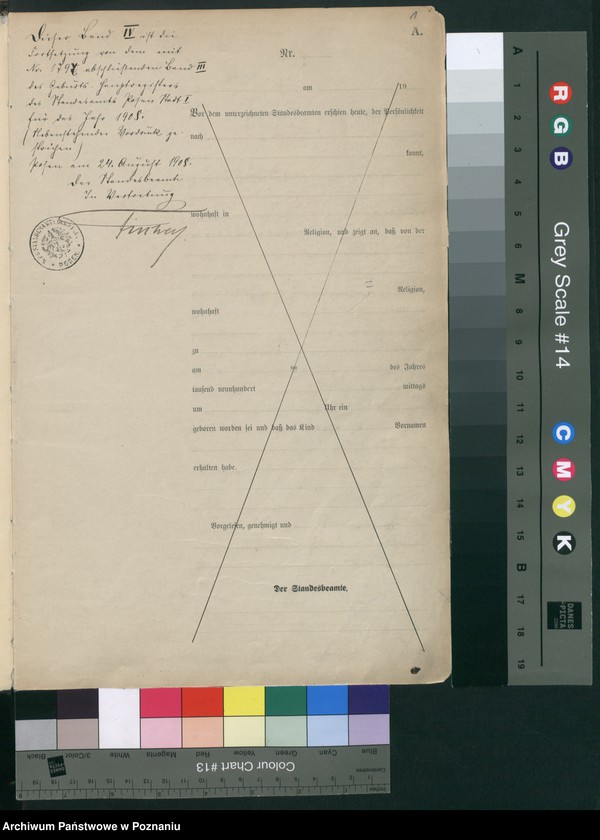 1
A.
Dieser Band IV ist die
Fortsetzung von dem mit
No. 1797 abschließenden Band III
des Geburts-Hauptregisters
des Standesamts Posen Stadt I
für das Jahr 1908.
(Nebenstehender Vordruck ge-
strichen)
Posen am 24. August 1908.
Der Standesbeamte
In Vertretung
POSEN
Nr.
am 19
Vor dem unterzeichneten Standesbeamten erschien heute, der Persönlichkeit
nach
kannt,
wohnhaft in
Religion, und zeigt an, daß von der
Religion,
wohnhaft
zu
am ten des Jahres
tausend neunhundert mittags
um Uhr ein
geboren worden sei und daß das Kind Vornamen
erhalten habe.
Vorgelesen, genehmigt und
Der Standesbeamte.
A 1 2 3 4 5 6 M 8 9 10 11 12 13 14 15 B 17 18 19
R G B
Grey Scale #14
C M Y K
DANES-PICTA
Black 3/Color White Magenta Red Yellow Green Cyan Blue
Colour Chart #13
Centimetres
Inches
Archiwum Państwowe w Poznaniu